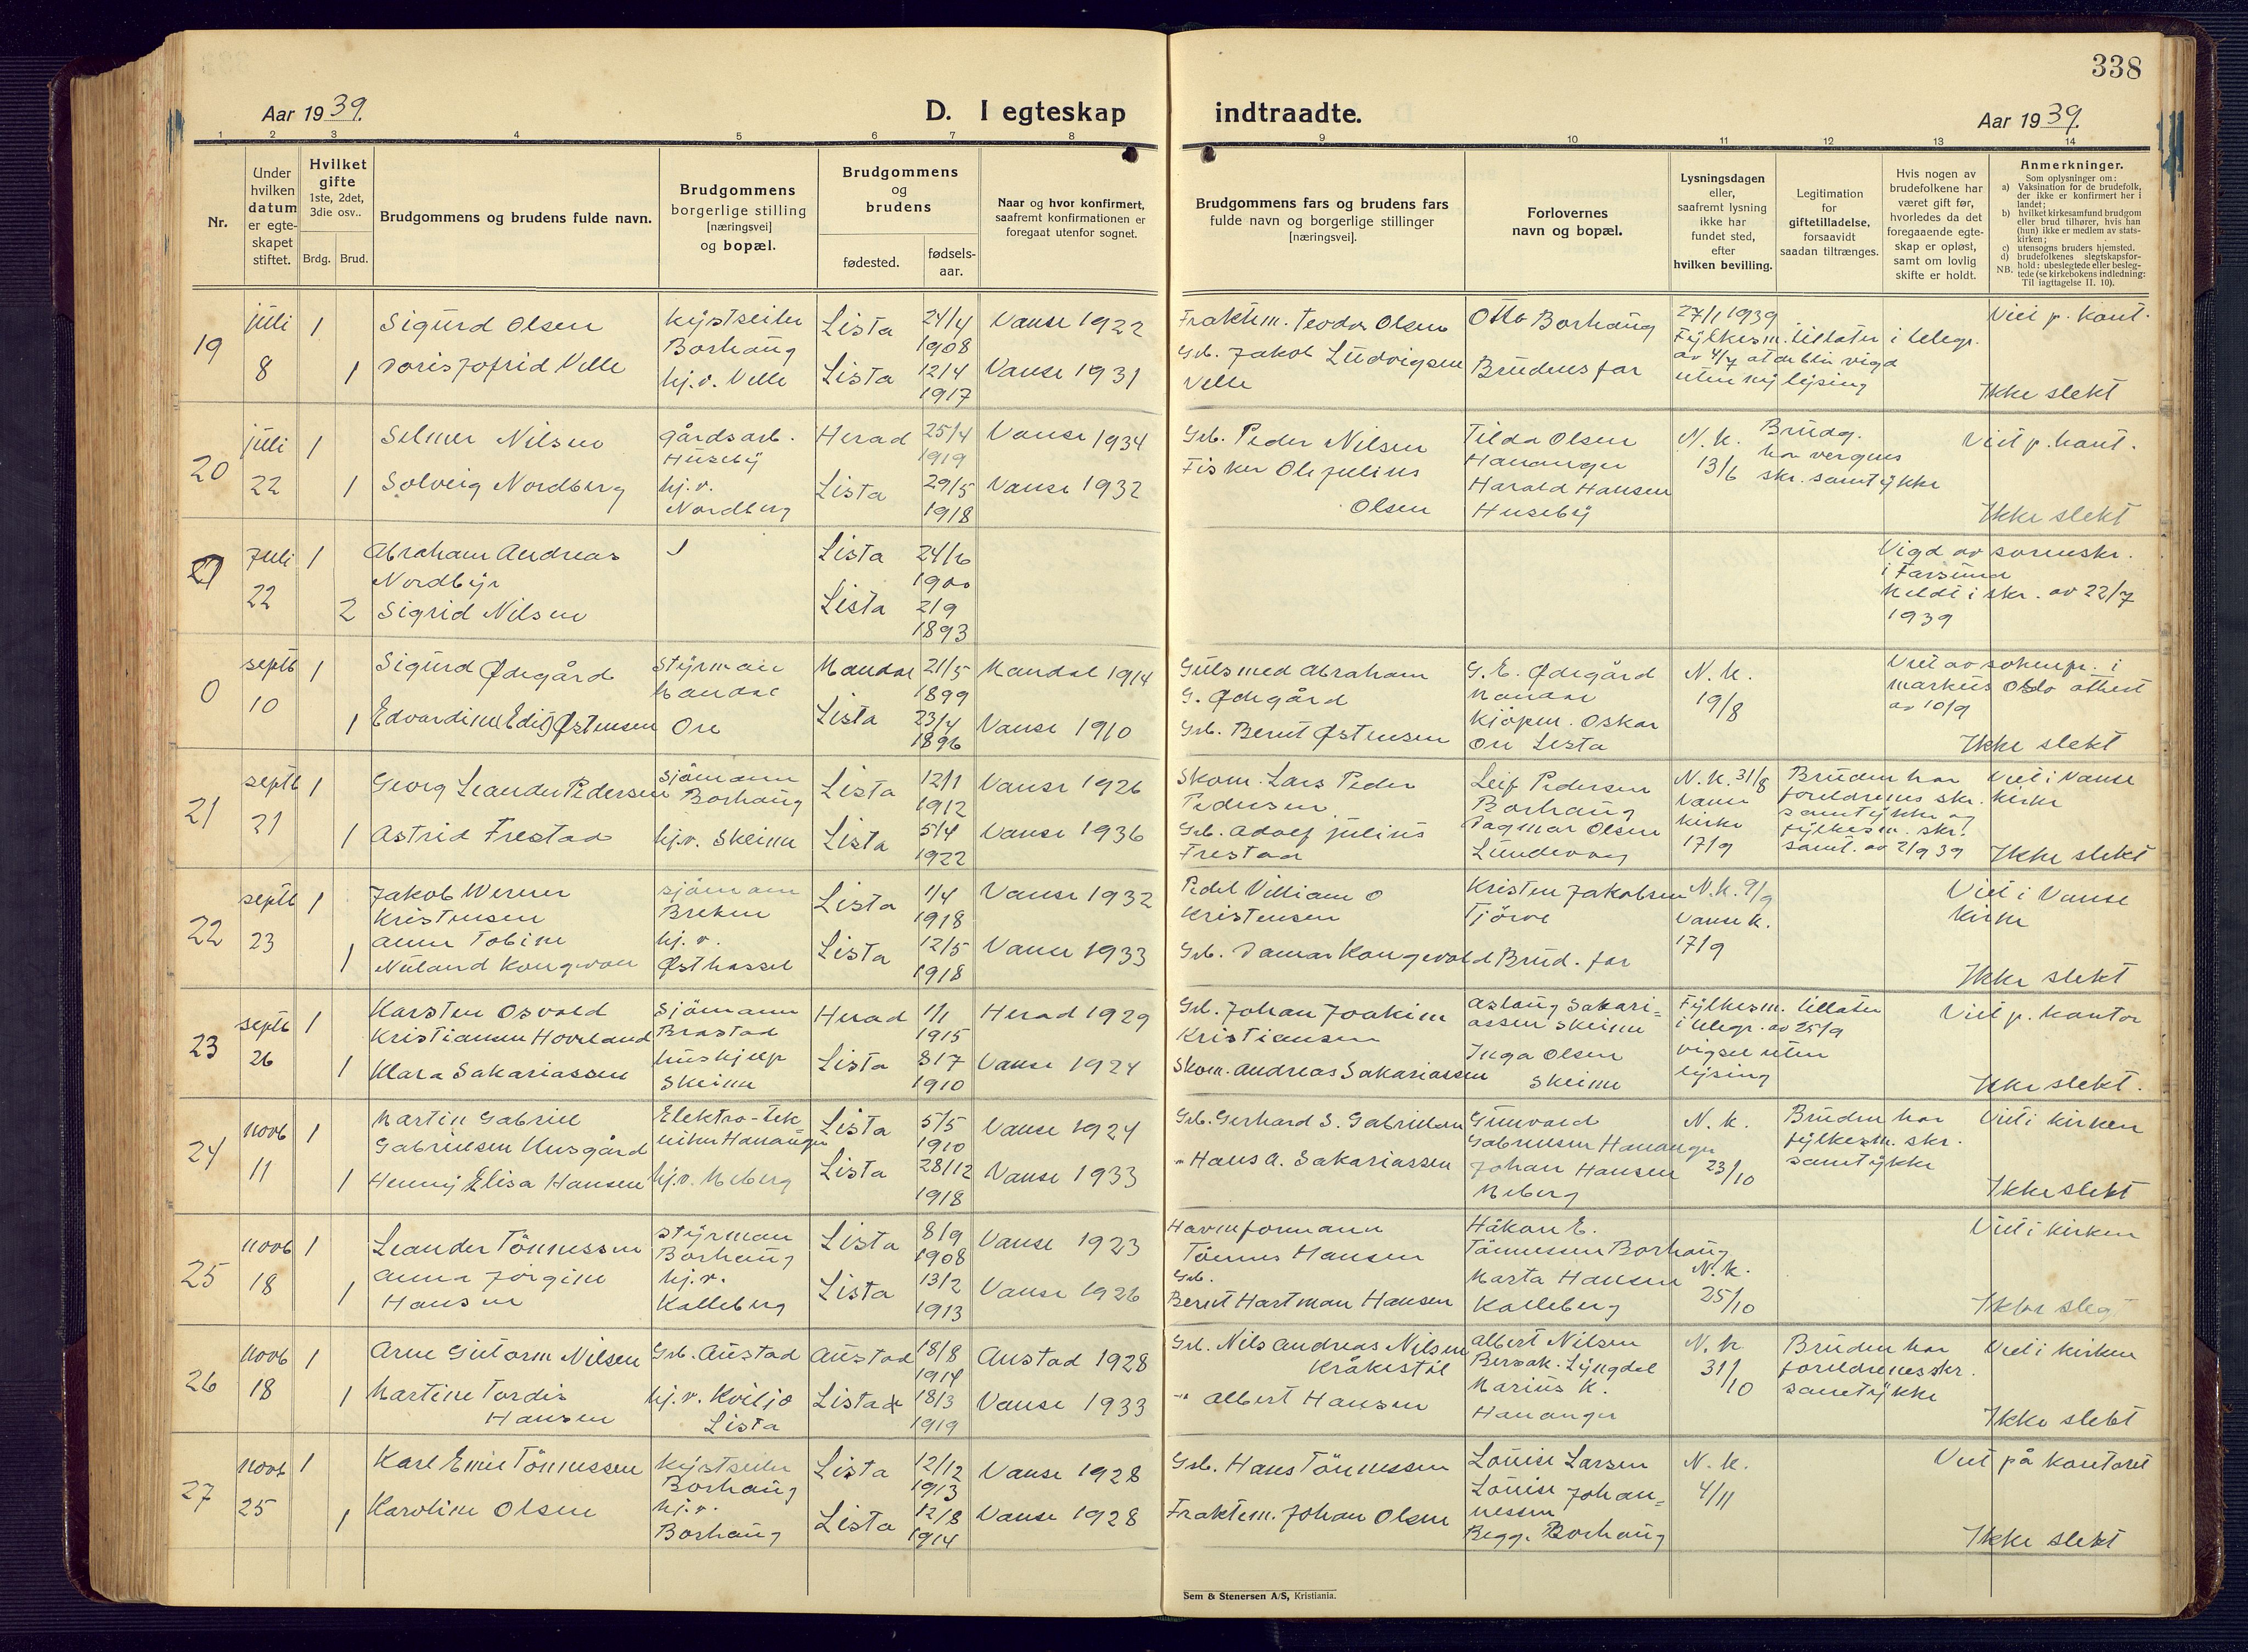 338
Aar 1939.
D. I egteskap
indtraadte.
Aar 1939.
1 2 3 4 5 6 7 8 9 10 11 12 13 14
Nr.
Under
hvilken
datum
er egte-
skapet
stiftet.
Hvilket
gifte
1ste, 2det,
3die osv..
Brdg. Brud.
Brudgommens og brudens fulde navn.
Brudgommens
borgerlige stilling
[næringsvei]
og bopæl.
Brudgommens
og
brudens
fødested.
fødsels-
aar.
Naar og hvor konfirmert,
saafremt konfirmationen er
foregaat utenfor sognet.
Brudgommens fars og brudens fars
fulde navn og borgerlige stillinger
[næringsvei].
Forlovernes
navn og bopæl.
Lysningsdagen
eller,
saafremt lysning
ikke har
fundet sted,
efter
hvilken bevilling.
Legitimation
for
giftetilladelse,
forsaavidt
saadan tiltrænges.
Hvis nogen av
brudefolkene har
været gift før,
hvorledes da det
foregaaende egte-
skap er opløst,
samt om lovlig
skifte er holdt.
Anmerkninger.
Som oplysninger om:
a) Vaksination for de brudefolk,
der ikke er konfirmert her i
landet;
b) hvilket kirkesamfund brudgom
eller brud tilhører, hvis han
(hun) ikke er medlem av stats-
kirken;
c) utensogns bruders hjemsted.
d) brudefolkenes slegtskapsfor-
hold: ubeslegtede eller besleg-
NB. tede (se kirkebokens indledning:
Til iagttagelse II. 10).
19
juli
8
1
Sigurd Olsen
kystseiler
Borhaug
Lista
24/4
1908
Vanse 1922
1
Doris Jofrid Velle
hj.v. Velle
Lista
12/4
1917
Vanse 1931
Fraktem. Teodor Olsen
Grb. Jakob Ludvigsen
Velle
Otto Borhaug
Brudens far
27/1 1939
Fylkesm. tillater i telegr.
av 4/7 at de blir vigd
uten ny lysing
Viet p. kont.
Ikke slekt
20
juli
22
1
Selmer Nilsen
gårdsarb.
Huseby
Herad
25/4
1919
Vanse 1934
1
Solveig Nordberg
hj.v.
Nordberg
Lista
29/5
1918
Vanse 1932
Grb. Peder Nilsen
Fisker Ole Julius
Olsen
Tilda Olsen
Hananger
Harald Hansen
Huseby
N.k.
13/6
Brudg.
har verges
skr. samtykke
Viet p. kont.
Ikke slekt
Juli
22
1
Abraham Andreas
Nordbyr
Lista
24/6
1900
2
Sigrid Nilsen
Lista
2/9
1893
Vigd av sorenskr.
i Farsund
Meldt i skr. av 22/7
1939
0
septb
10
1
Sigurd Ødegård
Styrmann
Mandal
Mandal
21/5
1899
Mandal 1914
1
Edvardine (Edit) Østensen
Ore
Lista
23/4
1896
Vanse 1910
Gulsmed Abraham
G. Ødegård
Grb. Bernt Østensen
G. E. Ødegård
Mandal
Kjøpm. Oskar
Ore Lista
N.k.
19/8
Viet av sokenpr. i
Markus Oslo attest
av 10/9
Ikke slekt
21
septb
21
1
Georg Leander Pedersen
sjömann
Borhaug
Lista
12/1
1912
Vanse 1926
1
Astrid Frestad
hj.v. Skeime
Lista
5/4
1922
Vanse 1936
Skom. Lars Peder
Pedersen
Grb. Adolf Julius
Frestad
Leif Pedersen
Borhaug
Dagmar Olsen
Lundevåg
N.K. 31/8
Vanse
kirke
17/9
Bruden har
foreldrenes skr.
samtykke og
fylkesm. skr.
samt. av 2/9 39
Viet i Vanse
kirke
Ikke slekt
22
septb
23
1
Jakob Werner
Kristensen
sjömann
Brekne
Lista
1/4
1918
Vanse 1932
1
Anne Tobine
Nuland Kongevold
hj.v.
Østhassel
Lista
12/5
1918
Vanse 1933
Pedel Villiam O
Kristensen
Grb. Damas Kongevold
Kristen Jakobsen
Tjørve
Brud. far
N.K. 9/9
Vanse k.
17/9
Viet i Vanse
kirke
Ikke slekt
23
septb
26
1
Karsten Osvald
Kristiansen Hoveland
Sjömann
Brastad
Herad
1/1
1915
Herad 1929
1
Klara Sakariassen
hushjelp
Skeime
Lista
8/7
1910
Vanse 1924
Grb. Johan Joakim
Kristiansen
Skom. Andreas Sakariassen
Aslaug Sakari=
assen Skeime
Inga Olsen
Skeime
Fylkesm. tillater
i telegr. av 25/9
vigsel uten
lysing
Viet p. kontor
Ikke slekt.
24
novb
11
1
Martin Gabriel
Gabrielsen Husgård
Elektro-tek=
niker Hananger
Lista
5/5
1910
Vanse 1924
1
Henny Elisa Hansen
hj.v. Meberg
Lista
28/12
1918
Vanse 1933
Grb. Gerhard S. Gabrielsen
" Hans A. Sakariassen
Gunvald
Gabrielsen Hananger
Johan Hansen
Meberg
N.k.
23/10
Bruden har
fylkesm. skr.
samtykke
Viet i kirken
Ikke slekt
25
novb
18
1
Leander Tönnessen
Styrman
Borhaug
Lista
8/9
1908
Vanse 1923
1
Anna Jörgine
Hansen
hj.v.
Kalleberg
Lista
13/2
1913
Vanse 1926
Havneformann
Tönnes Hansen
Grb.
Bernt Hartman Hansen
Håkon E.
Tönnessen Borhaug
Marta Hansen
Kalleberg
N.k.
25/10
Viet i kirken
Ikke sleg
26
novb
18
1
Arne Gutorm Nilsen
Grb. Austad
Austad
18/8
1914
Austad 1928
1
Martine Tordis
Hansen
hj.v. Kviljo
Lista
Lista
18/3
1919
Vanse 1933
Grb. Nils Andreas Nilsen
Kråkestöl
" Albert Hansen
Albert Nilsen
Bersak. Lyngdal
Marius K.
Hananger
N.k
31/10
Bruden har
foreldrenes skr.
samtykke
Viet i kirken
Ikke slekt
27
novb
25
1
Karl Emil Tönnessen
Kystseiler
Borhaug
Lista
12/12
1913
Vanse 1928
1
Karoline Olsen
hj.v.
Borhaug
Lista
12/8
1914
Vanse 1928
Grb. Hans Tönnessen
Fraktem. Johan Olsen
Louise Larsen
Louise Johan=
nessen
Begge Borhaug
N.k.
4/11
Viet på kontoret
Ikke slekt
Sem & Stenersen A/S, Kristiania.